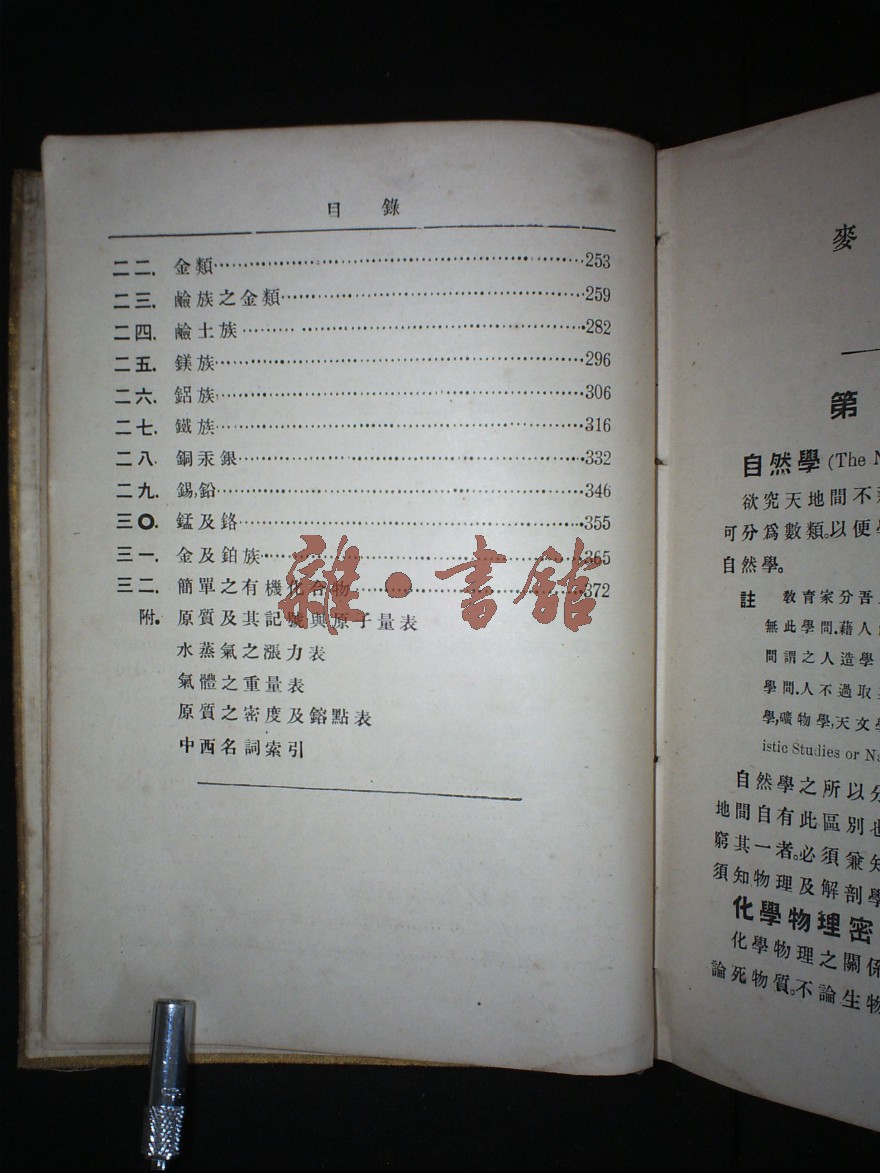 目錄
二二. 金類……253
二三. 鹼族之金類……259
二四. 鹼土族……282
二五. 鎂族……296
二六. 鋁族……306
二七. 鐵族……316
二八. 銅汞銀……332
二九. 錫,鉛……346
三〇. 錳及鉻……355
三一. 金及鉑族……365
三二. 簡單之有機化合物……372
附. 原質及其記號與原子量表
水蒸氣之漲力表
氣體之重量表
原質之密度及鎔點表
中西名詞索引
雜·書館
麥
第
自然學 (The N
欲究天地間不
可分爲數類。以便
自然學。
註 教育家分吾
無此學問.藉人
間謂之人造學
學問.人不過取
學,礦物學,天文
istic Studies or Na
自然學之所以分
地間自有此區別也
窮其一者。必須兼知
須知物理及解剖學
化學物理密
化學物理之關係
論死物質。不論生物